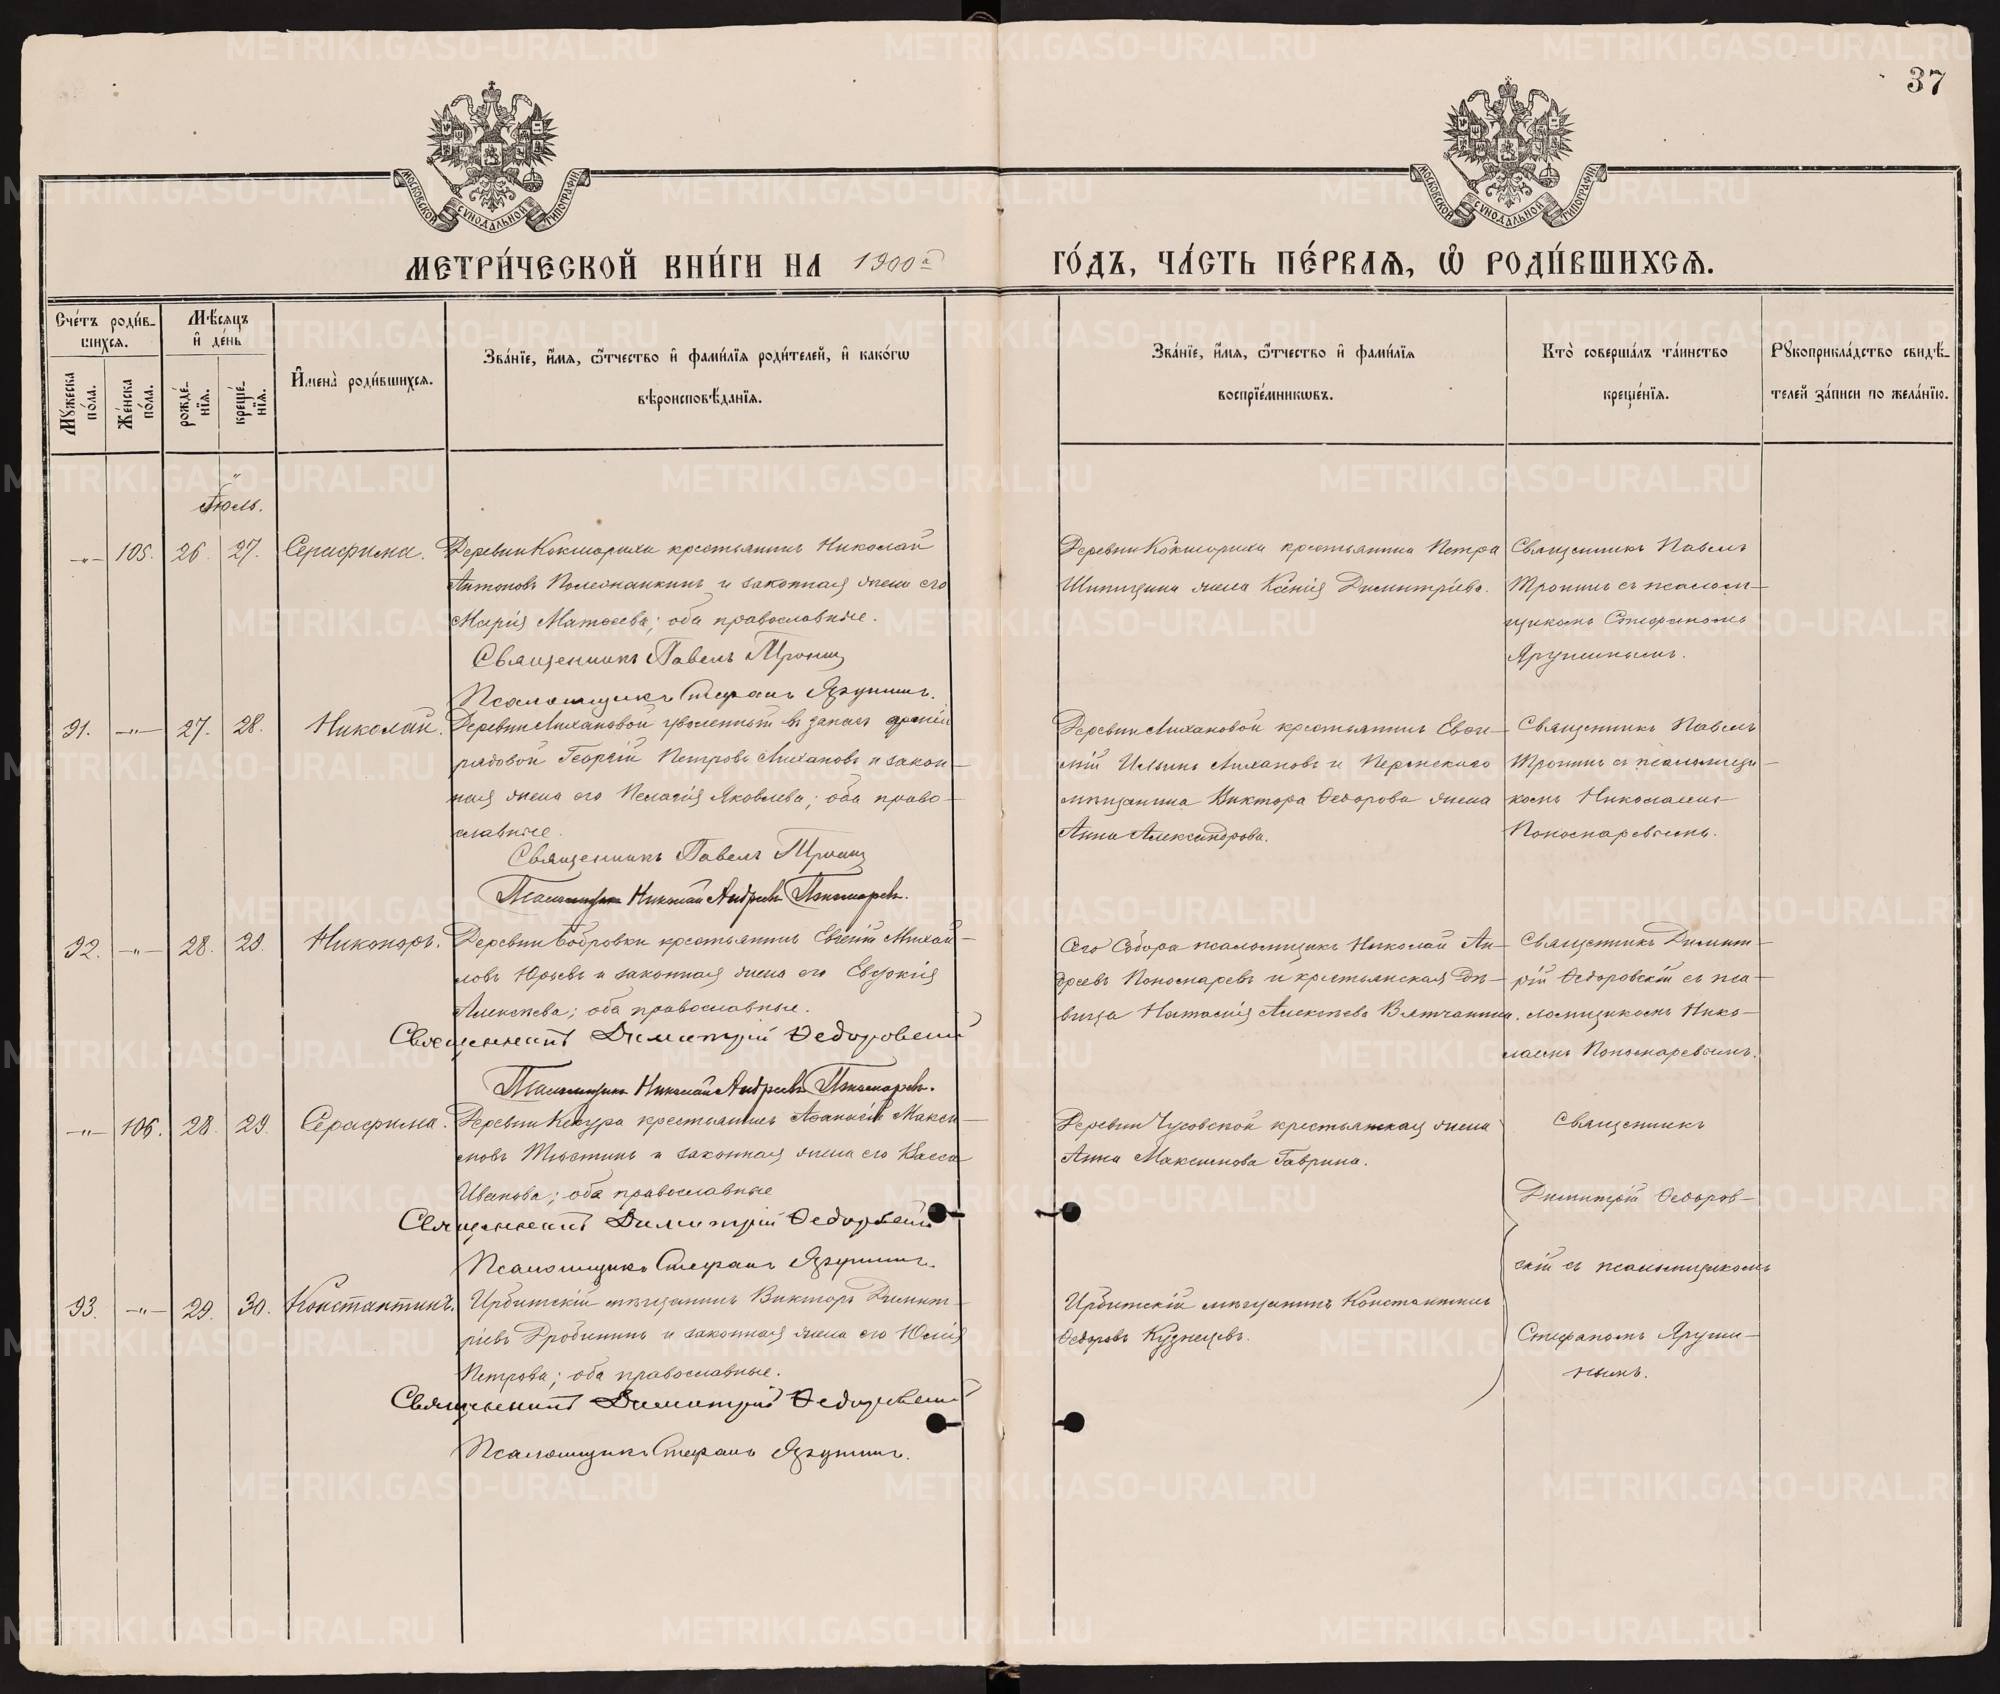 37
МОСКОВСКОЙ СУНОДАЛЬНОЙ ТИПОГРАФІИ
МОСКОВСКОЙ СУНОДАЛЬНОЙ ТИПОГРАФІИ
МЕТРИ́ЧЕСКОЙ КНИ́ГИ НА 1900й ГО́ДЪ, ЧА́СТЬ ПЕ́РВАѦ, Ѡ҆ РОДИ́ВШИХСѦ.
Сче́тъ роди́в-
шихсѧ.
Мꙋ́жеска по́ла.
Же́нска по́ла.
Мѣ́сѧцъ и҆ де́нь
рожде́-
нїѧ.
креще́-
нїѧ.
И҆мена̀ роди́вшихсѧ.
Зва́нїе, и҆́мѧ, ѻ҆́тчество и҆ фами́лїѧ роди́телей, и҆ како́гѡ
вѣроисповѣ́данїѧ.
Зва́нїе, и҆́мѧ, ѻ҆́тчество и҆ фами́лїѧ
воспрїе́мникѡвъ.
Кто̀ соверша́лъ та́инство
креще́нїѧ.
Рꙋкоприкла́дство свидѣ́-
телей за́писи по жела́нїю.
Іюль.
-"- 105. 26. 27. Серафима.
Деревни Кокшариха крестьянинъ Николай
Антоновъ и законная жена его
Марія Матѳеева; оба православные.
Священникъ Павелъ Тронинъ
Псаломщикъ Стефанъ Ярушинъ.
Деревни Кокшариха крестьянина Петра
Шипицина жена Ксенія Димитріева.
Священникъ Павелъ
Тронинъ съ псалом-
щикомъ Стефаномъ
Ярушинымъ.
91. -"- 27. 28. Николай.
Деревни Лихановой уволенный въ запасъ арміи
рядовой Георгій Петровъ Лихановъ и закон-
ная жена его Пелагія Яковлева; оба право-
славные.
Священникъ Павелъ Тронинъ
Псаломщикъ Николай Андреевъ Пономаревъ.
Деревни Лихановой крестьянинъ Евѳи-
мій Ильинъ Лихановъ и Пермскаго
мѣщанина Виктора Ѳедорова жена
Анна Александрова.
Священникъ Павелъ
Тронинъ съ псаломщи-
комъ Николаемъ
Пономаревымъ.
92. -"- 28. 29. Никаноръ.
Деревни Бобровки крестьянинъ Евгеній Михай-
ловъ Юрьевъ и законная жена его Евдокія
Алексѣева; оба православные.
Священникъ Димитрій Ѳедоровскій
Псаломщикъ Николай Андреевъ Пономаревъ.
Сего Собора псаломщикъ Николай Ан-
дреевъ Пономаревъ и крестьянская дѣ-
вица Наталія Алексѣева Вятчанина.
Священникъ Димит-
рій Ѳедоровскій съ пса-
ломщикомъ Нико-
лаемъ Пономаревымъ.
-"- 106. 28. 29. Серафима.
Деревни крестьянинъ Аѳанасій Макси-
мовъ и законная жена его Васса
Иванова; оба православные
Священникъ Димитрій Ѳедоровскій
Псаломщикъ Стефанъ Ярушинъ.
Деревни Чусовской крестьянская жена
Анна Максимова Гаврина.
Священникъ
Димитрій Ѳедоров-
скій съ псаломщикомъ
Стефаномъ Яруши-
нымъ.
93. -"- 29. 30. Константинъ.
Ирбитскій мѣщанинъ Викторъ Димит-
ріевъ Дробининъ и законная жена его Юлія
Петрова; оба православные.
Священникъ Димитрій Ѳедоровскій
Псаломщикъ Стефанъ Ярушинъ.
Ирбитскій мѣщанинъ Константинъ
Ѳедоровъ Кузнецовъ.
METRIKI.GASO-URAL.RU